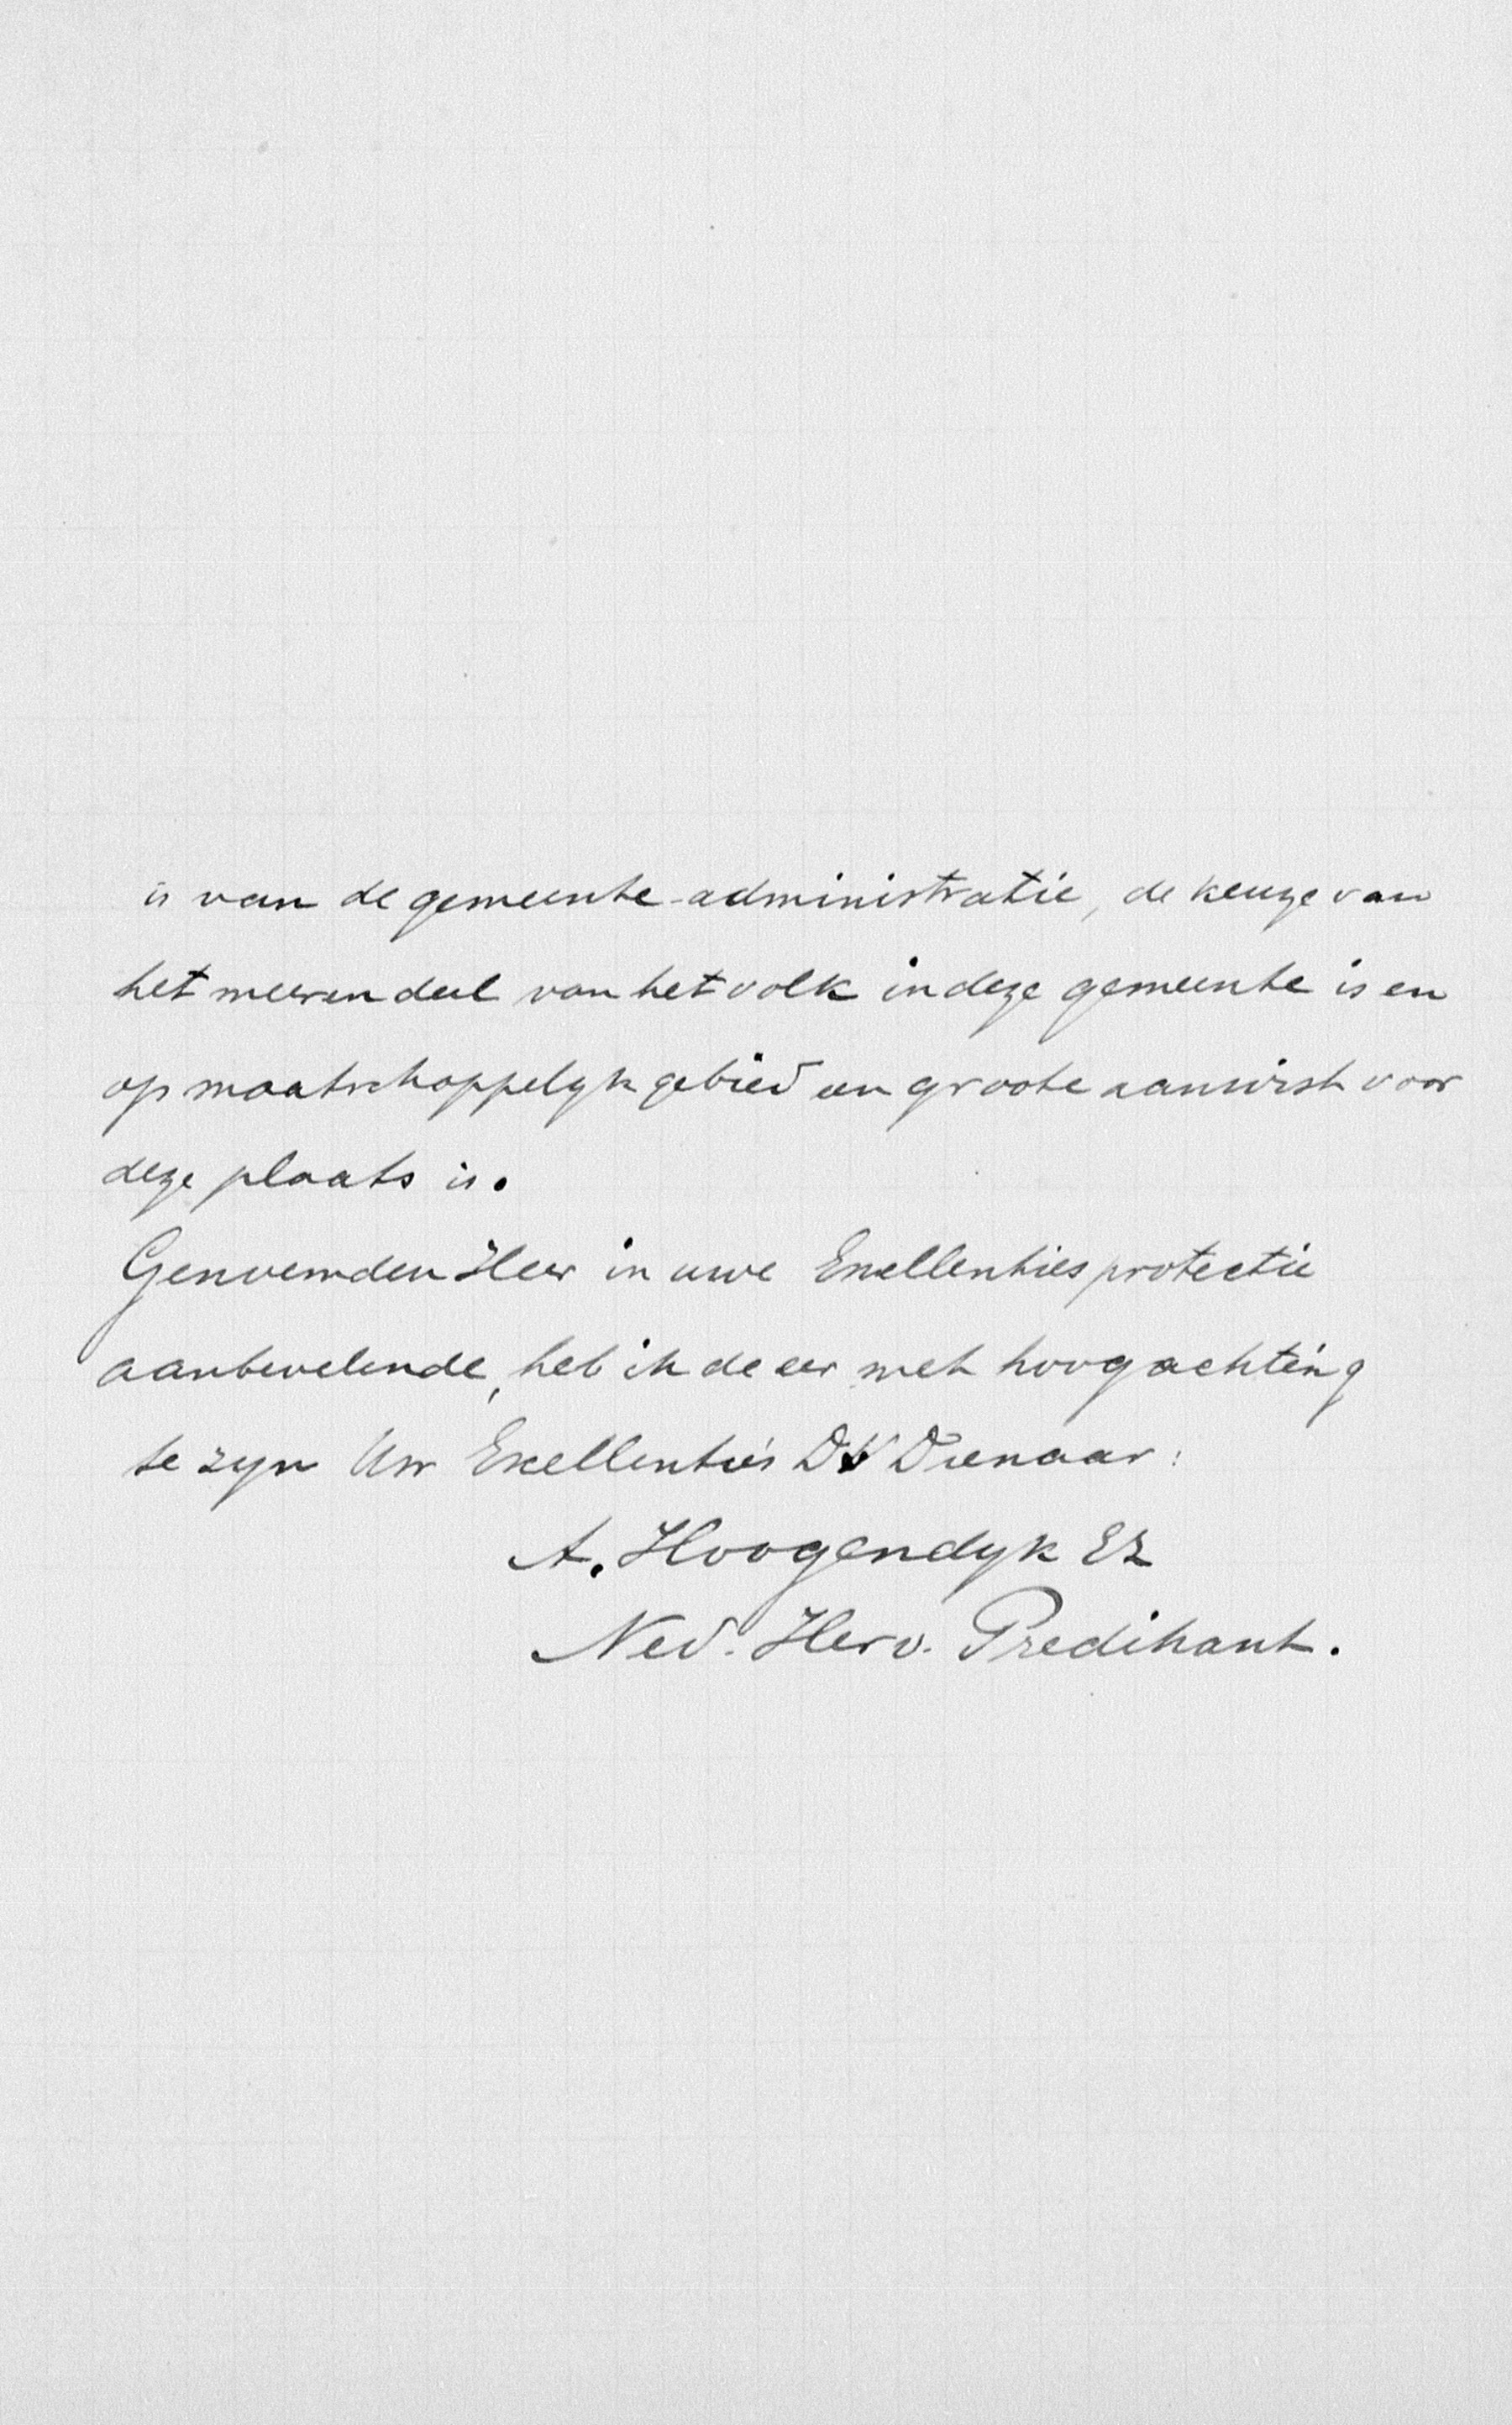 is van de gemeente-administratie, de keuze van
het meerendeel van het volk in deze gemeente is en
op maatschappelyk gebied een groote aanwist voor
deze plaats is.
Genoemden Heer in uwe Exellenties protectie
aanbevelende, heb ik de eer met hoogachting
te zyn Uw Exellentie's DV Dienaar:
A. Hoogendyk EZ
Ned. Herv. Predikant.